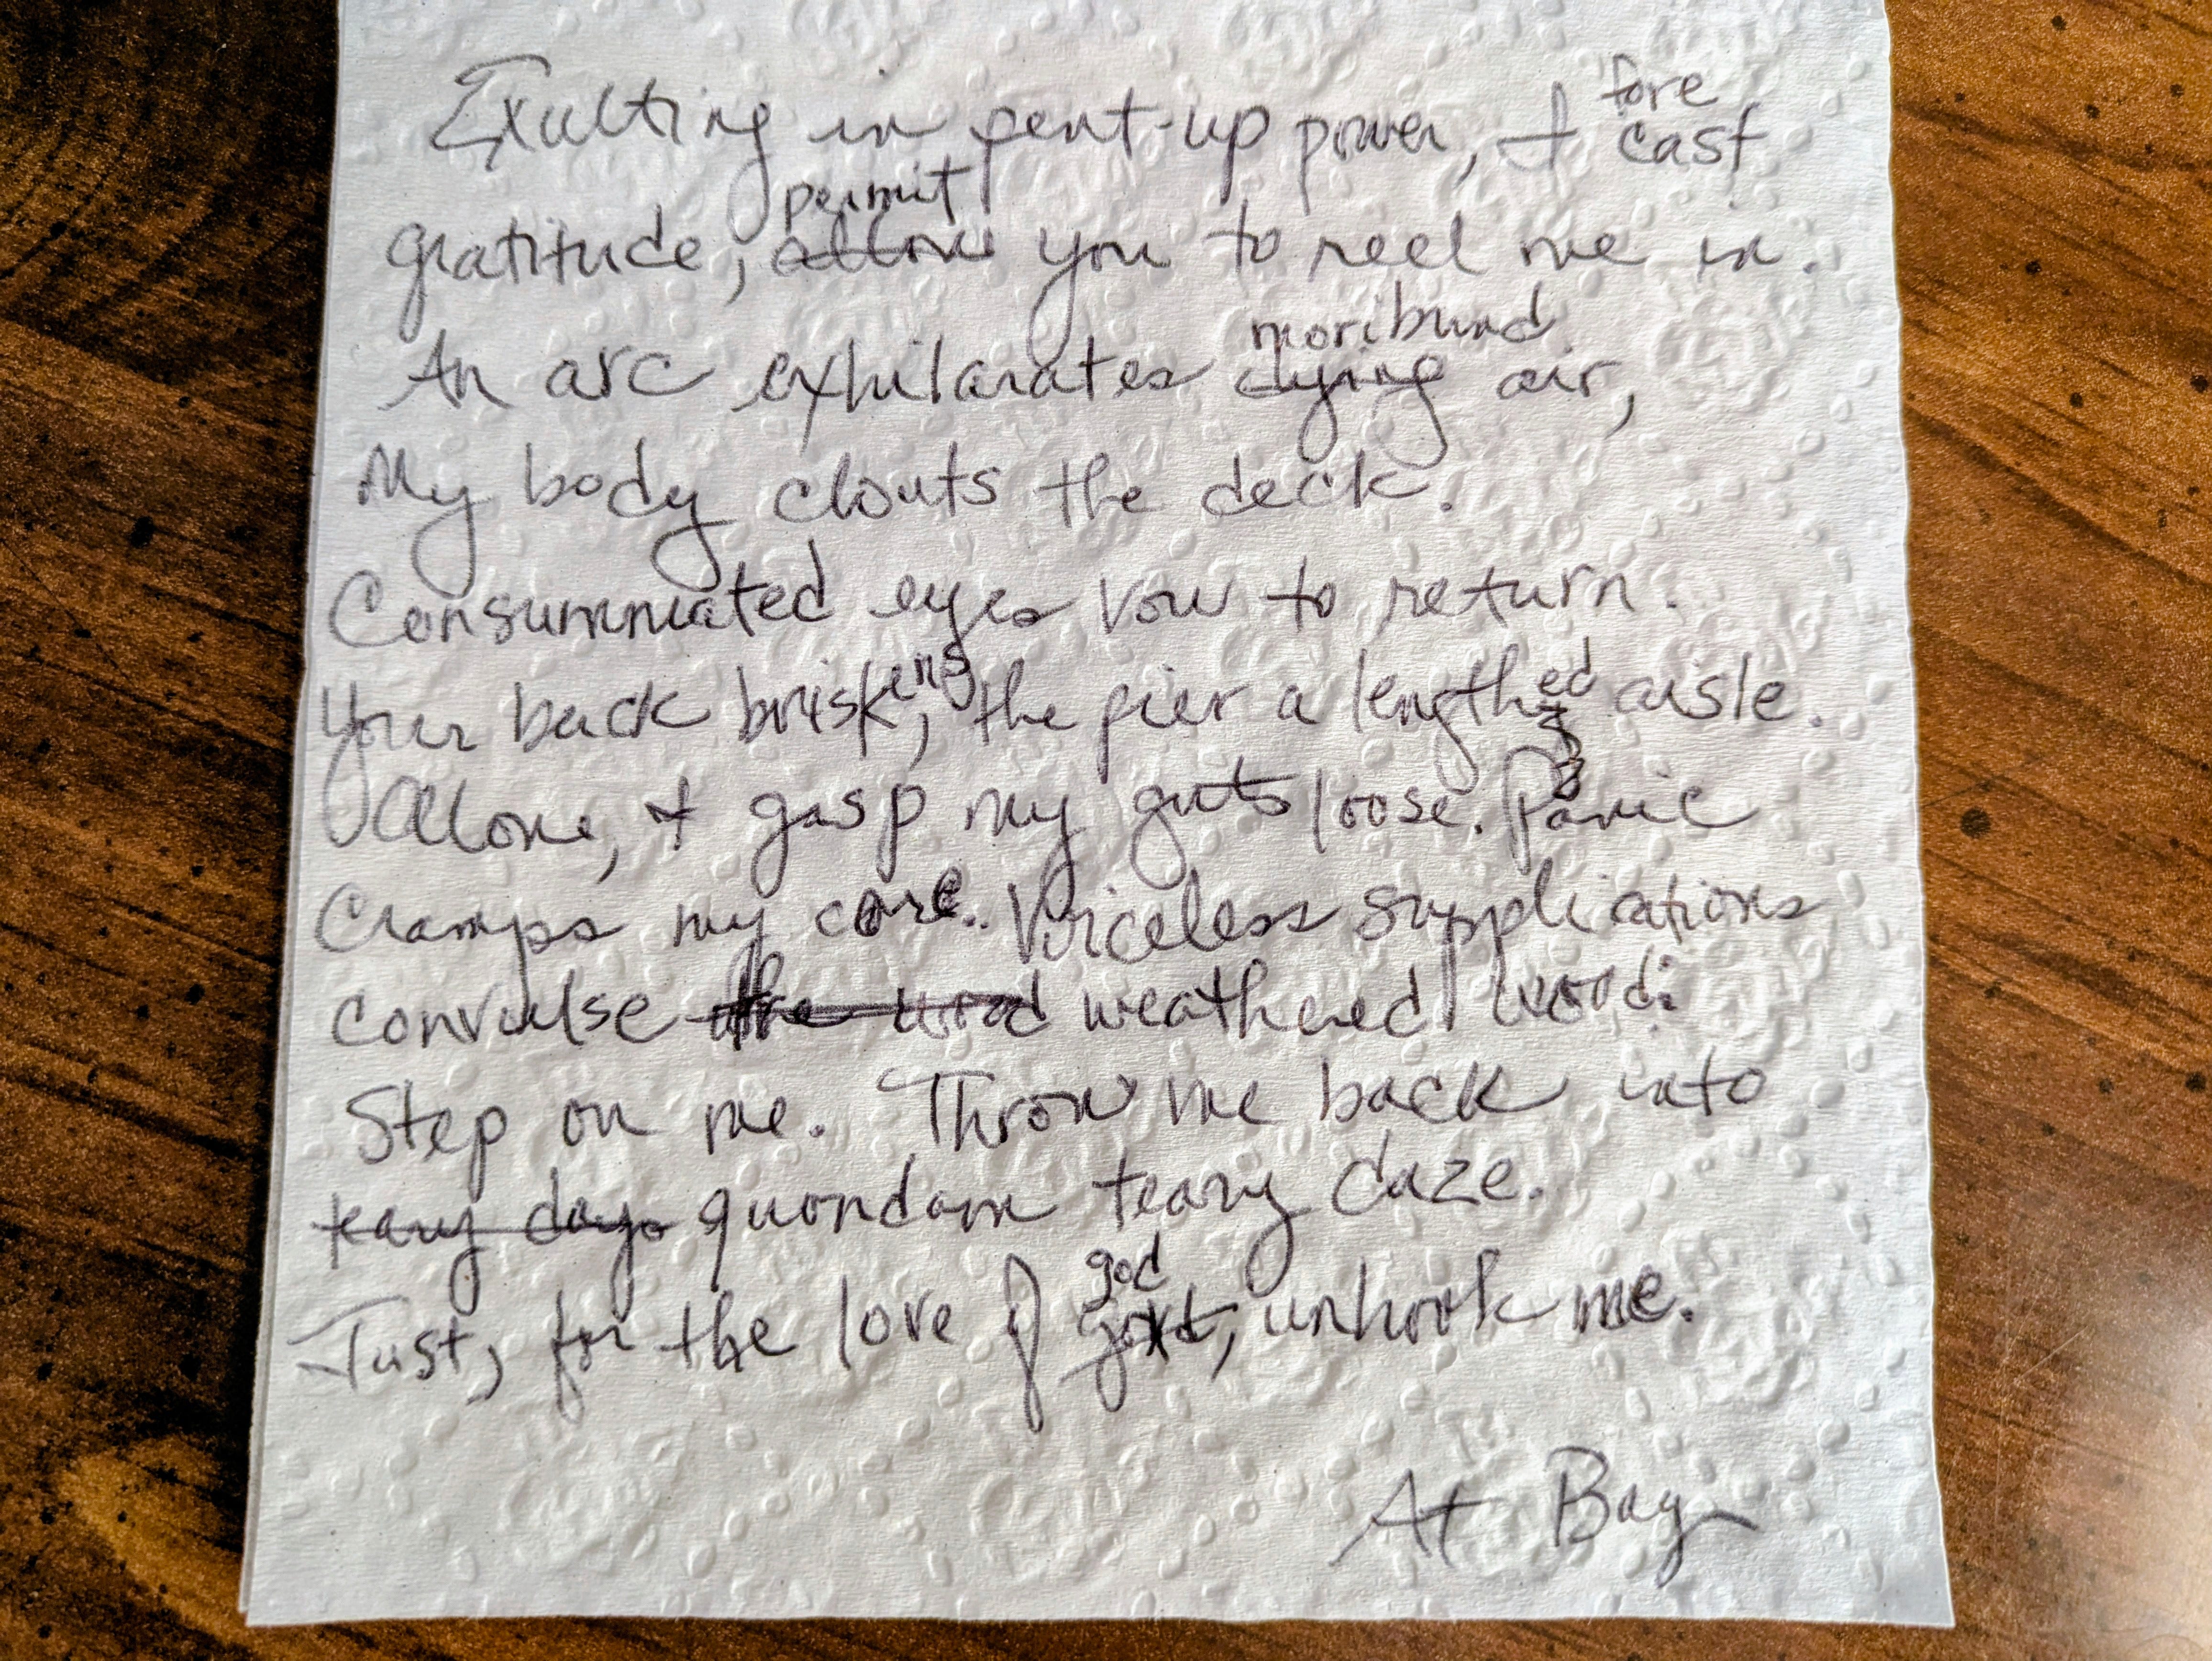 Exulting in pent-up power, I forecast
gratitude, permit allow you to reel me in.
An arc exhilarates moribund dying air,
My body clouts the deck.
Consummated eyes vow to return.
Your back briskens, the pier a lengthed aisle.
Alone, I gasp my guts loose. Panic
Cramps my core. Voiceless supplications
convulse the wood weathered wood:
Step on me. Throw me back into
teary days quondam teary daze.
Just, for the love of god, unhook me.
At Bay